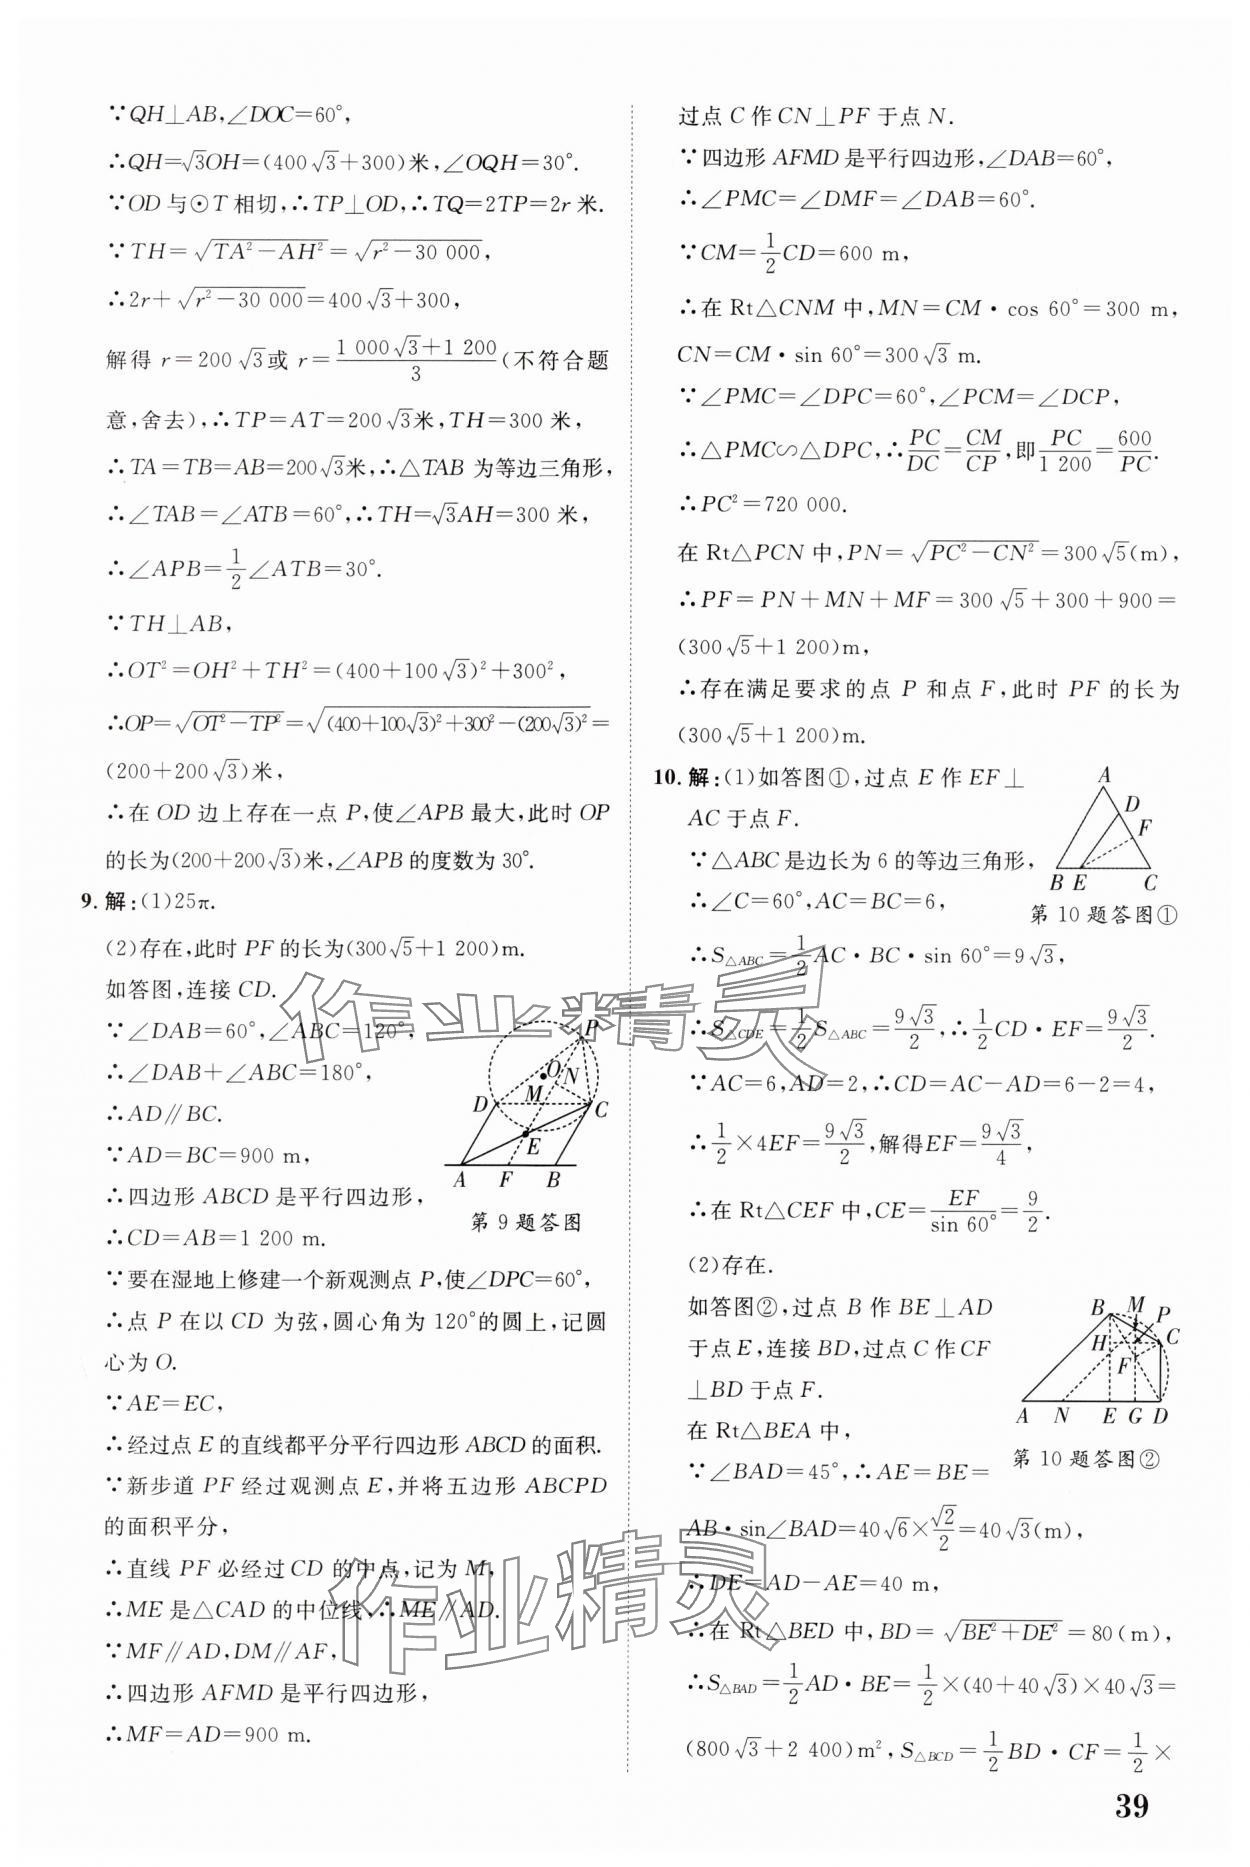 ∵QH⊥AB,∠DOC=60°,
∴QH=√3OH=(400√3+300)米,∠OQH=30°.
∵OD与⊙T相切,∴TP⊥OD,∴TQ=2TP=2r米.
∵TH=√(TA²-AH²)=√(r²-30 000),
∴2r+√(r²-30 000)=400√3+300,
解得r=200√3或r=(1 000√3+1 200)/3(不符合题
意,舍去),∴TP=AT=200√3米,TH=300米,
∴TA=TB=AB=200√3米,∴△TAB为等边三角形,
∴∠TAB=∠ATB=60°,∴TH=√3AH=300米,
∴∠APB=1/2∠ATB=30°.
∵TH⊥AB,
∴OT²=OH²+TH²=(400+100√3)²+300²,
∴OP=√(OT²-TP²)=√((400+100√3)²+300²-(200√3)²)=
(200+200√3)米,
∴在OD边上存在一点P,使∠APB最大,此时OP
的长为(200+200√3)米,∠APB的度数为30°.
9. 解:(1)25π.
(2)存在,此时PF的长为(300√5+1 200)m.
如答图,连接CD.
∵∠DAB=60°,∠ABC=120°,
∴∠DAB+∠ABC=180°,
∴AD∥BC.
∵AD=BC=900 m,
∴四边形ABCD是平行四边形,
∴CD=AB=1 200 m.
P
O
N
D
M
C
E
A F B
第9题答图
∵要在湿地上修建一个新观测点P,使∠DPC=60°,
∴点P在以CD为弦,圆心角为120°的圆上,记圆
心为O.
∵AE=EC,
∴经过点E的直线都平分平行四边形ABCD的面积.
∵新步道PF经过观测点E,并将五边形ABCPD
的面积平分,
∴直线PF必经过CD的中点,记为M,
∴ME是△CAD的中位线,∴ME∥AD.
∵MF∥AD,DM∥AF,
∴四边形AFMD是平行四边形,
∴MF=AD=900 m.
过点C作CN⊥PF于点N.
∵四边形AFMD是平行四边形,∠DAB=60°,
∴∠PMC=∠DMF=∠DAB=60°.
∵CM=1/2CD=600 m,
∴在Rt△CNM中,MN=CM·cos 60°=300 m,
CN=CM·sin 60°=300√3 m.
∵∠PMC=∠DPC=60°,∠PCM=∠DCP,
∴△PMC∽△DPC,∴PC/DC=CM/CP,即PC/1 200=600/PC.
∴PC²=720 000.
在Rt△PCN中,PN=√(PC²-CN²)=300√5(m),
∴PF=PN+MN+MF=300√5+300+900=
(300√5+1 200)m,
∴存在满足要求的点P和点F,此时PF的长为
(300√5+1 200)m.
10. 解:(1)如答图①,过点E作EF⊥
AC于点F.
∵△ABC是边长为6的等边三角形,
∴∠C=60°,AC=BC=6,
A
D
F
B E C
第10题答图①
∴S△ABC=1/2AC·BC·sin 60°=9√3,
∴S△CDE=1/2S△ABC=9√3/2,∴1/2CD·EF=9√3/2.
∵AC=6,AD=2,∴CD=AC-AD=6-2=4,
∴1/2×4EF=9√3/2,解得EF=9√3/4,
∴在Rt△CEF中,CE=EF/sin 60°=9/2.
(2)存在.
如答图②,过点B作BE⊥AD
于点E,连接BD,过点C作CF
⊥BD于点F.
在Rt△BEA中,
∵∠BAD=45°,∴AE=BE=
B M P
H C
F
A N E G D
第10题答图②
AB·sin∠BAD=40√6×√2/2=40√3(m),
∴DE=AD-AE=40 m,
∴在Rt△BED中,BD=√(BE²+DE²)=80(m),
∴S△BAD=1/2AD·BE=1/2×(40+40√3)×40√3=
(800√3+2 400)m²,S△BCD=1/2BD·CF=1/2×
39
作业精灵
作业精灵